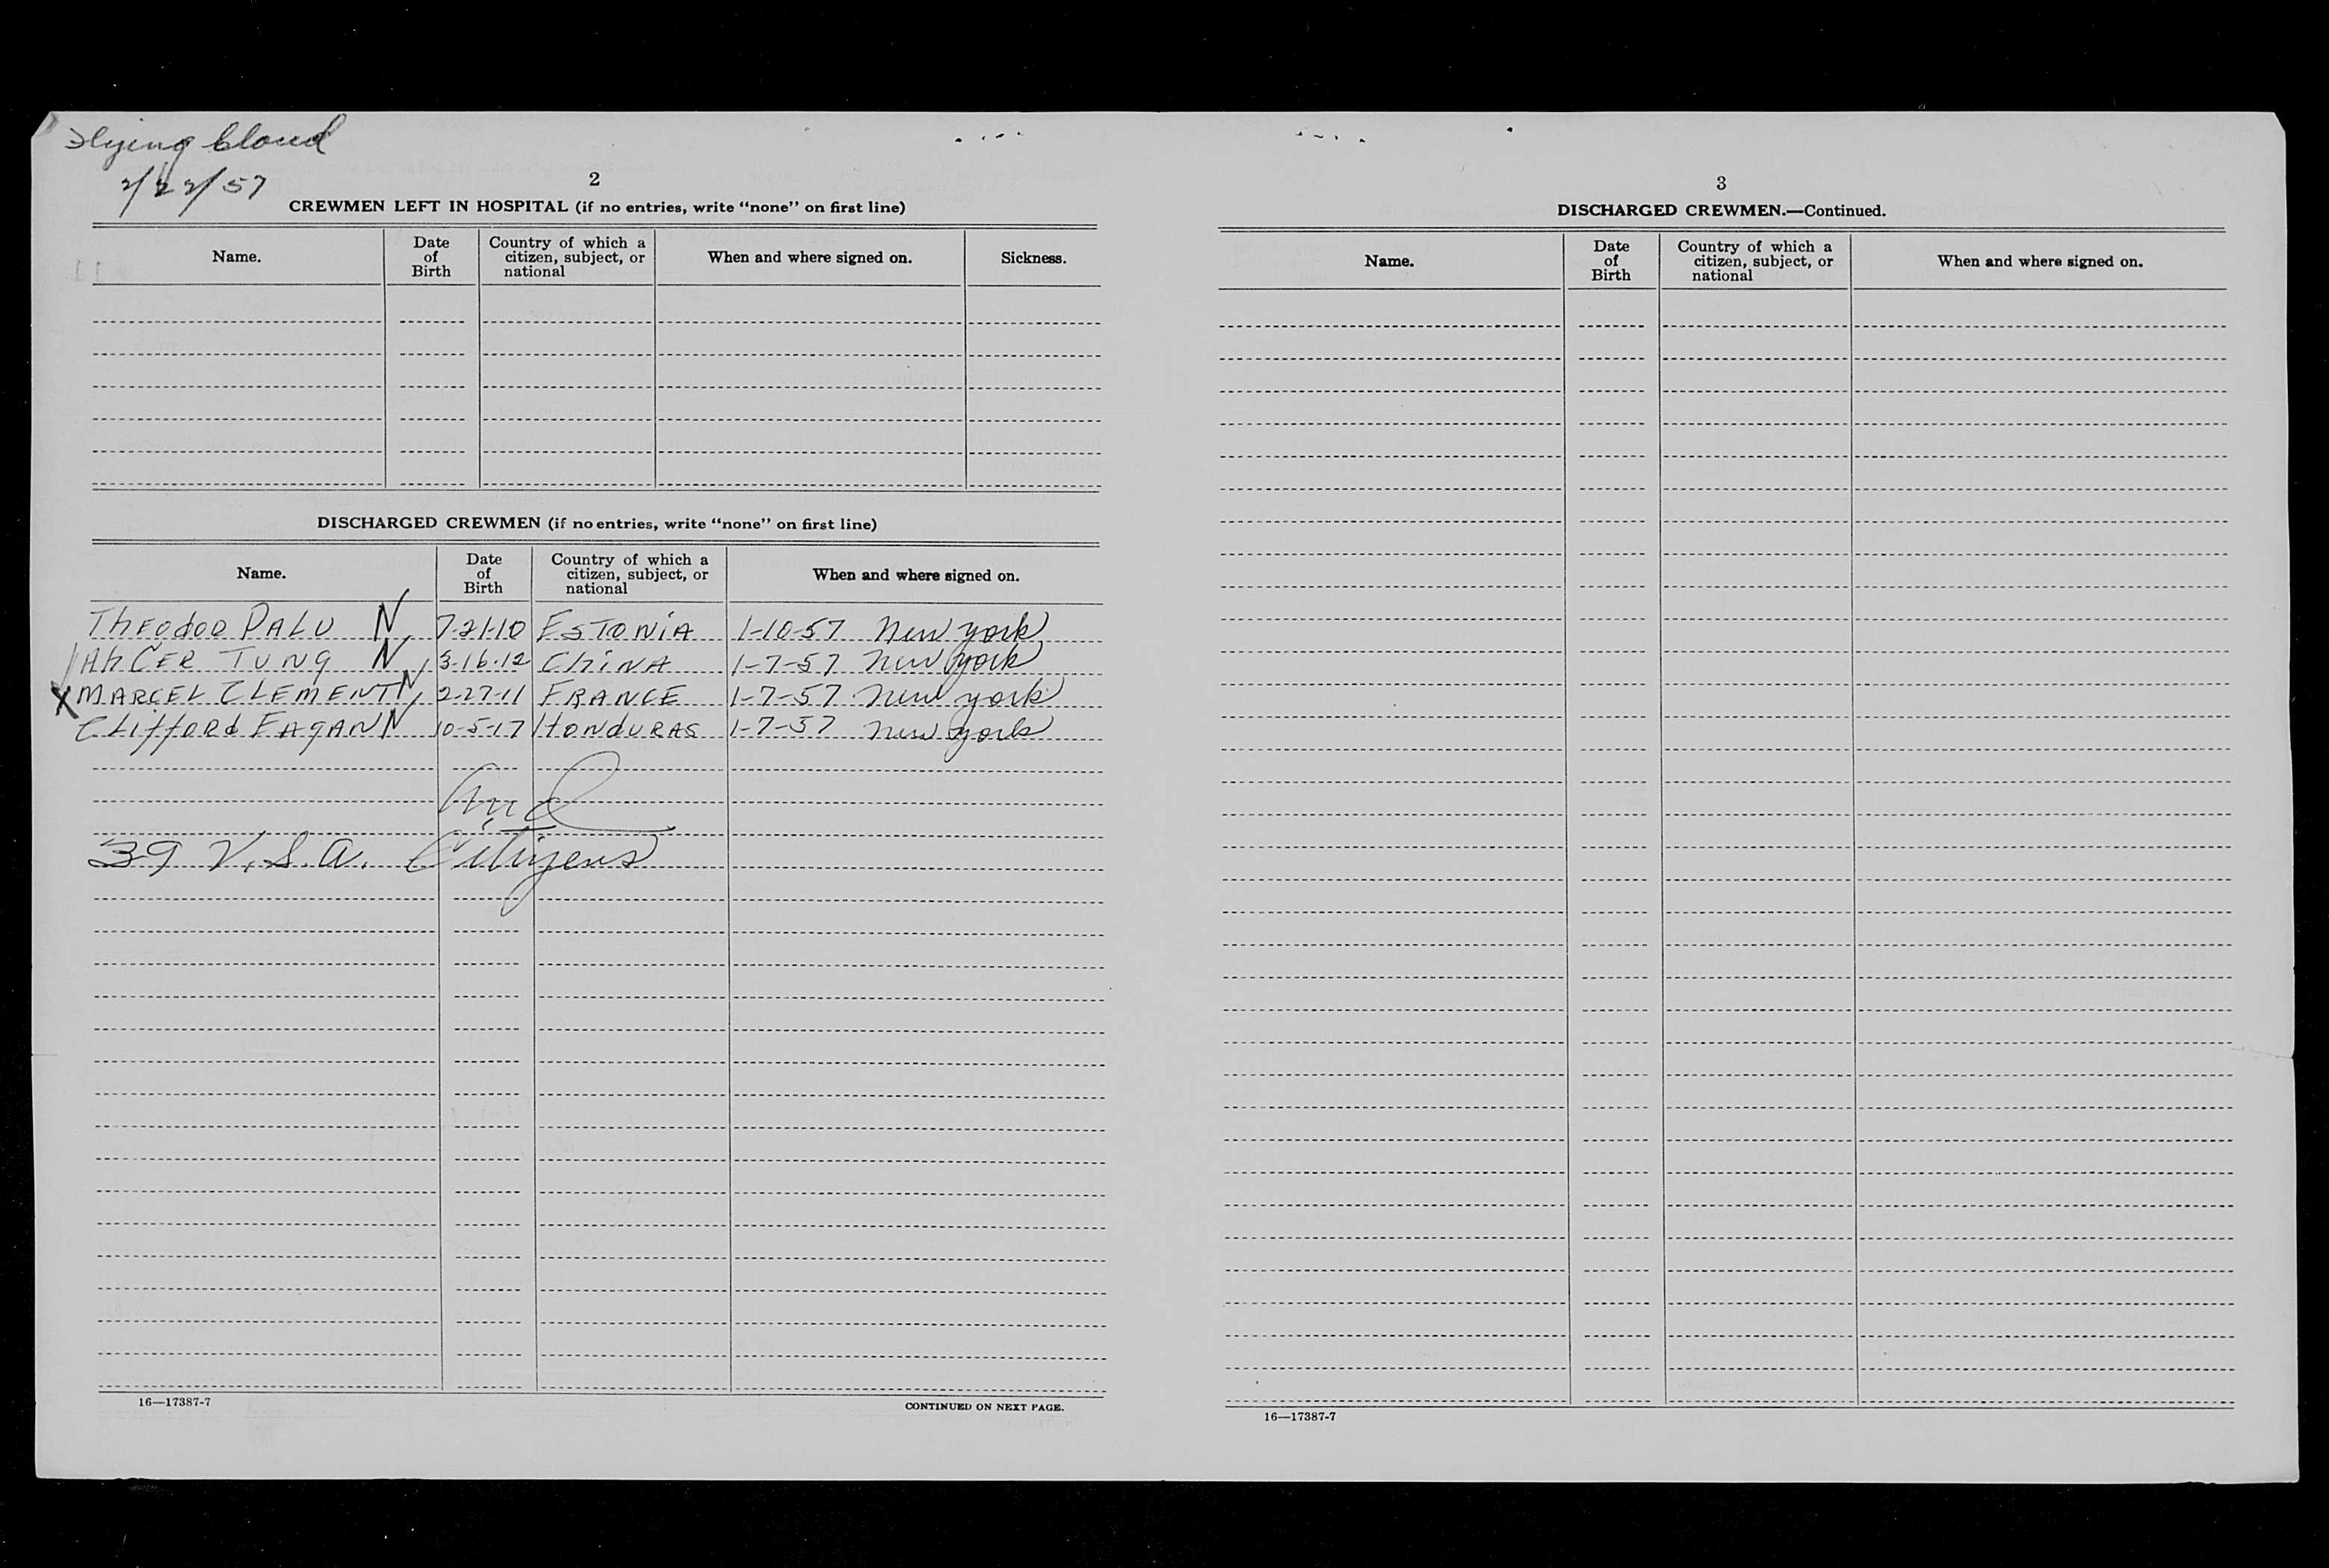 Flying Cloud
2/22/57
2
CREWMEN LEFT IN HOSPITAL (if no entries, write “none” on first line)
Name. Date of Birth Country of which a citizen, subject, or national When and where signed on. Sickness.
DISCHARGED CREWMEN (if no entries, write “none” on first line)
Name. Date of Birth Country of which a citizen, subject, or national When and where signed on.
Theodor Palu N 7-21-10 Estonia 1-10-57 New York
Ah Cer Tung N 3-16-12 China 1-7-57 New York
X Marcel Clement N 2-27-11 France 1-7-57 New York
Clifford Eagan N 10-5-17 Honduras 1-7-57 New York
And
39 U.S.A. Citizens
16—17387-7 CONTINUED ON NEXT PAGE.
3
DISCHARGED CREWMEN.—Continued.
Name. Date of Birth Country of which a citizen, subject, or national When and where signed on.
16—17387-7